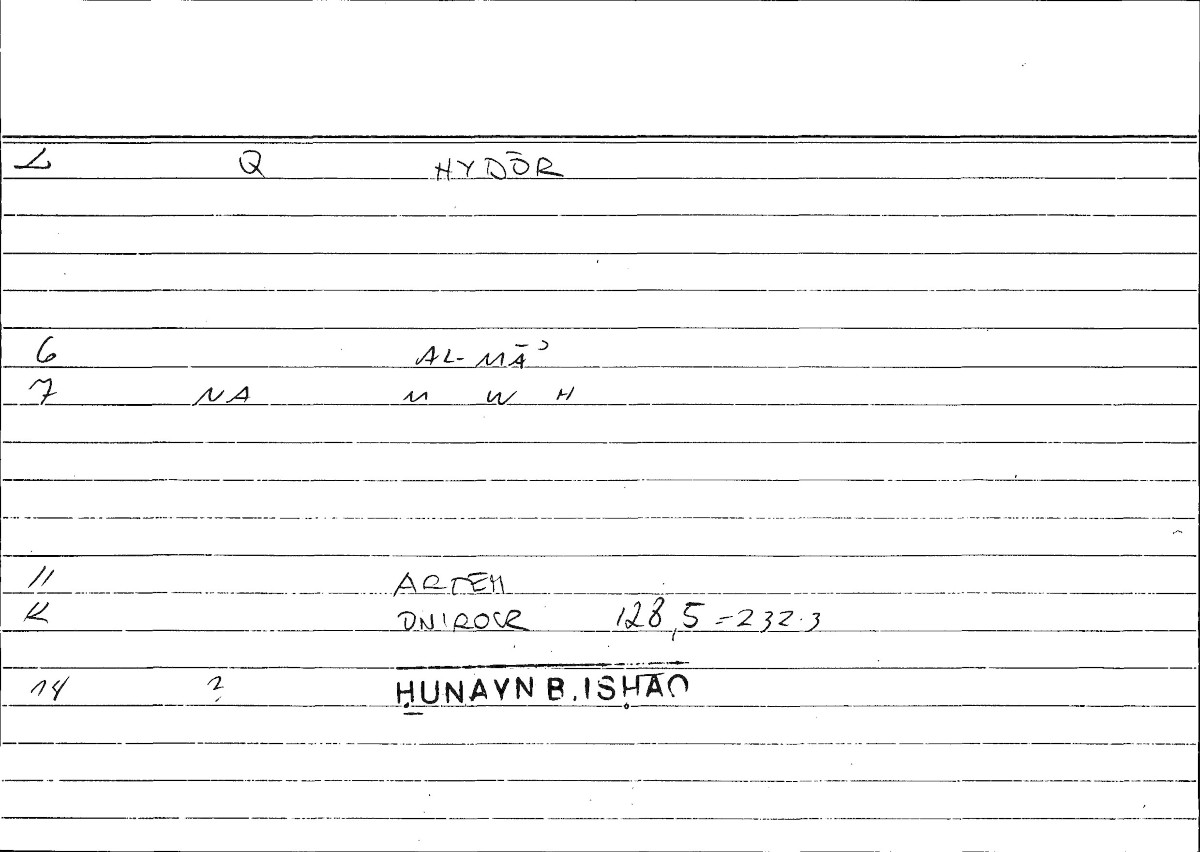 L Q HYDŌR
6 AL-MĀʾ
7 NA M W H
11 ARTEM
K ONIROCR 128,5 = 232.3
14 ? ḤUNAYN B. ISḤĀQ